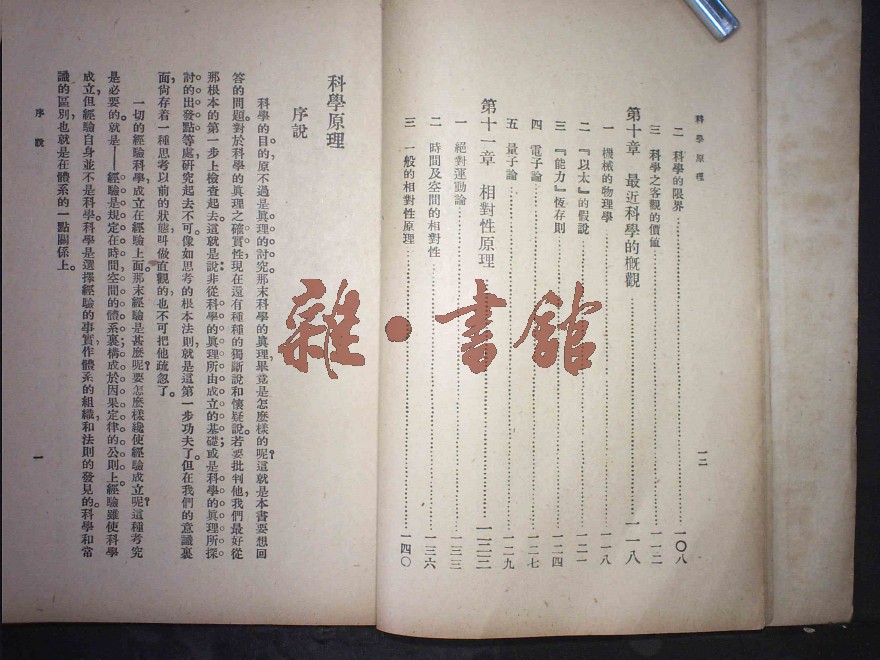 科學原理
二 科學的限界……一〇八
三 科學之客觀的價值……一一二
第十章 最近科學的概觀……一一八
一 機械的物理學……一一八
二 『以太』的假說……一二一
三 『能力』恆存則……一二四
四 電子論……一二七
五 量子論……一二九
第十一章 相對性原理……一三三
一 絕對運動論……一三三
二 時間及空間的相對性……一三六
三 一般的相對性原理……一四〇
一二
科學原理
序說
科學的目的，原不過是眞理的討究。那末科學的眞理，畢竟是怎麼樣的呢？這就是本書要想回
答的問題。對於科學的眞理之確實性，現在還有種種的獨斷說和懷疑說。若要批判他，我們最好從
那根本的第一步上檢查起去。這就是說：非從科學的眞理所由成立的基礎；或是科學的眞理所探
討的出發點等處研究起去不可。像如思考的根本法則，就是這第一步功夫了。但在我們的意識裏
面，尙存着一種思考以前的狀態，叫做直觀的，也不可把他疏忽了。
一切的經驗科學，成立在經驗上面。那末經驗是甚麼呢？要怎麼樣纔使經驗成立呢？這種考究
是必要的。就是——經驗是規定在時間，空間的體系裏，構成於因果定律的公則上。經驗雖使科學
成立，但經驗自身並不是科學。科學是選擇經驗的事實，作體系的組織和法則的發見的。科學和常
識的區別，也就是在體系的一點關係上。
序說
一
雜·書館